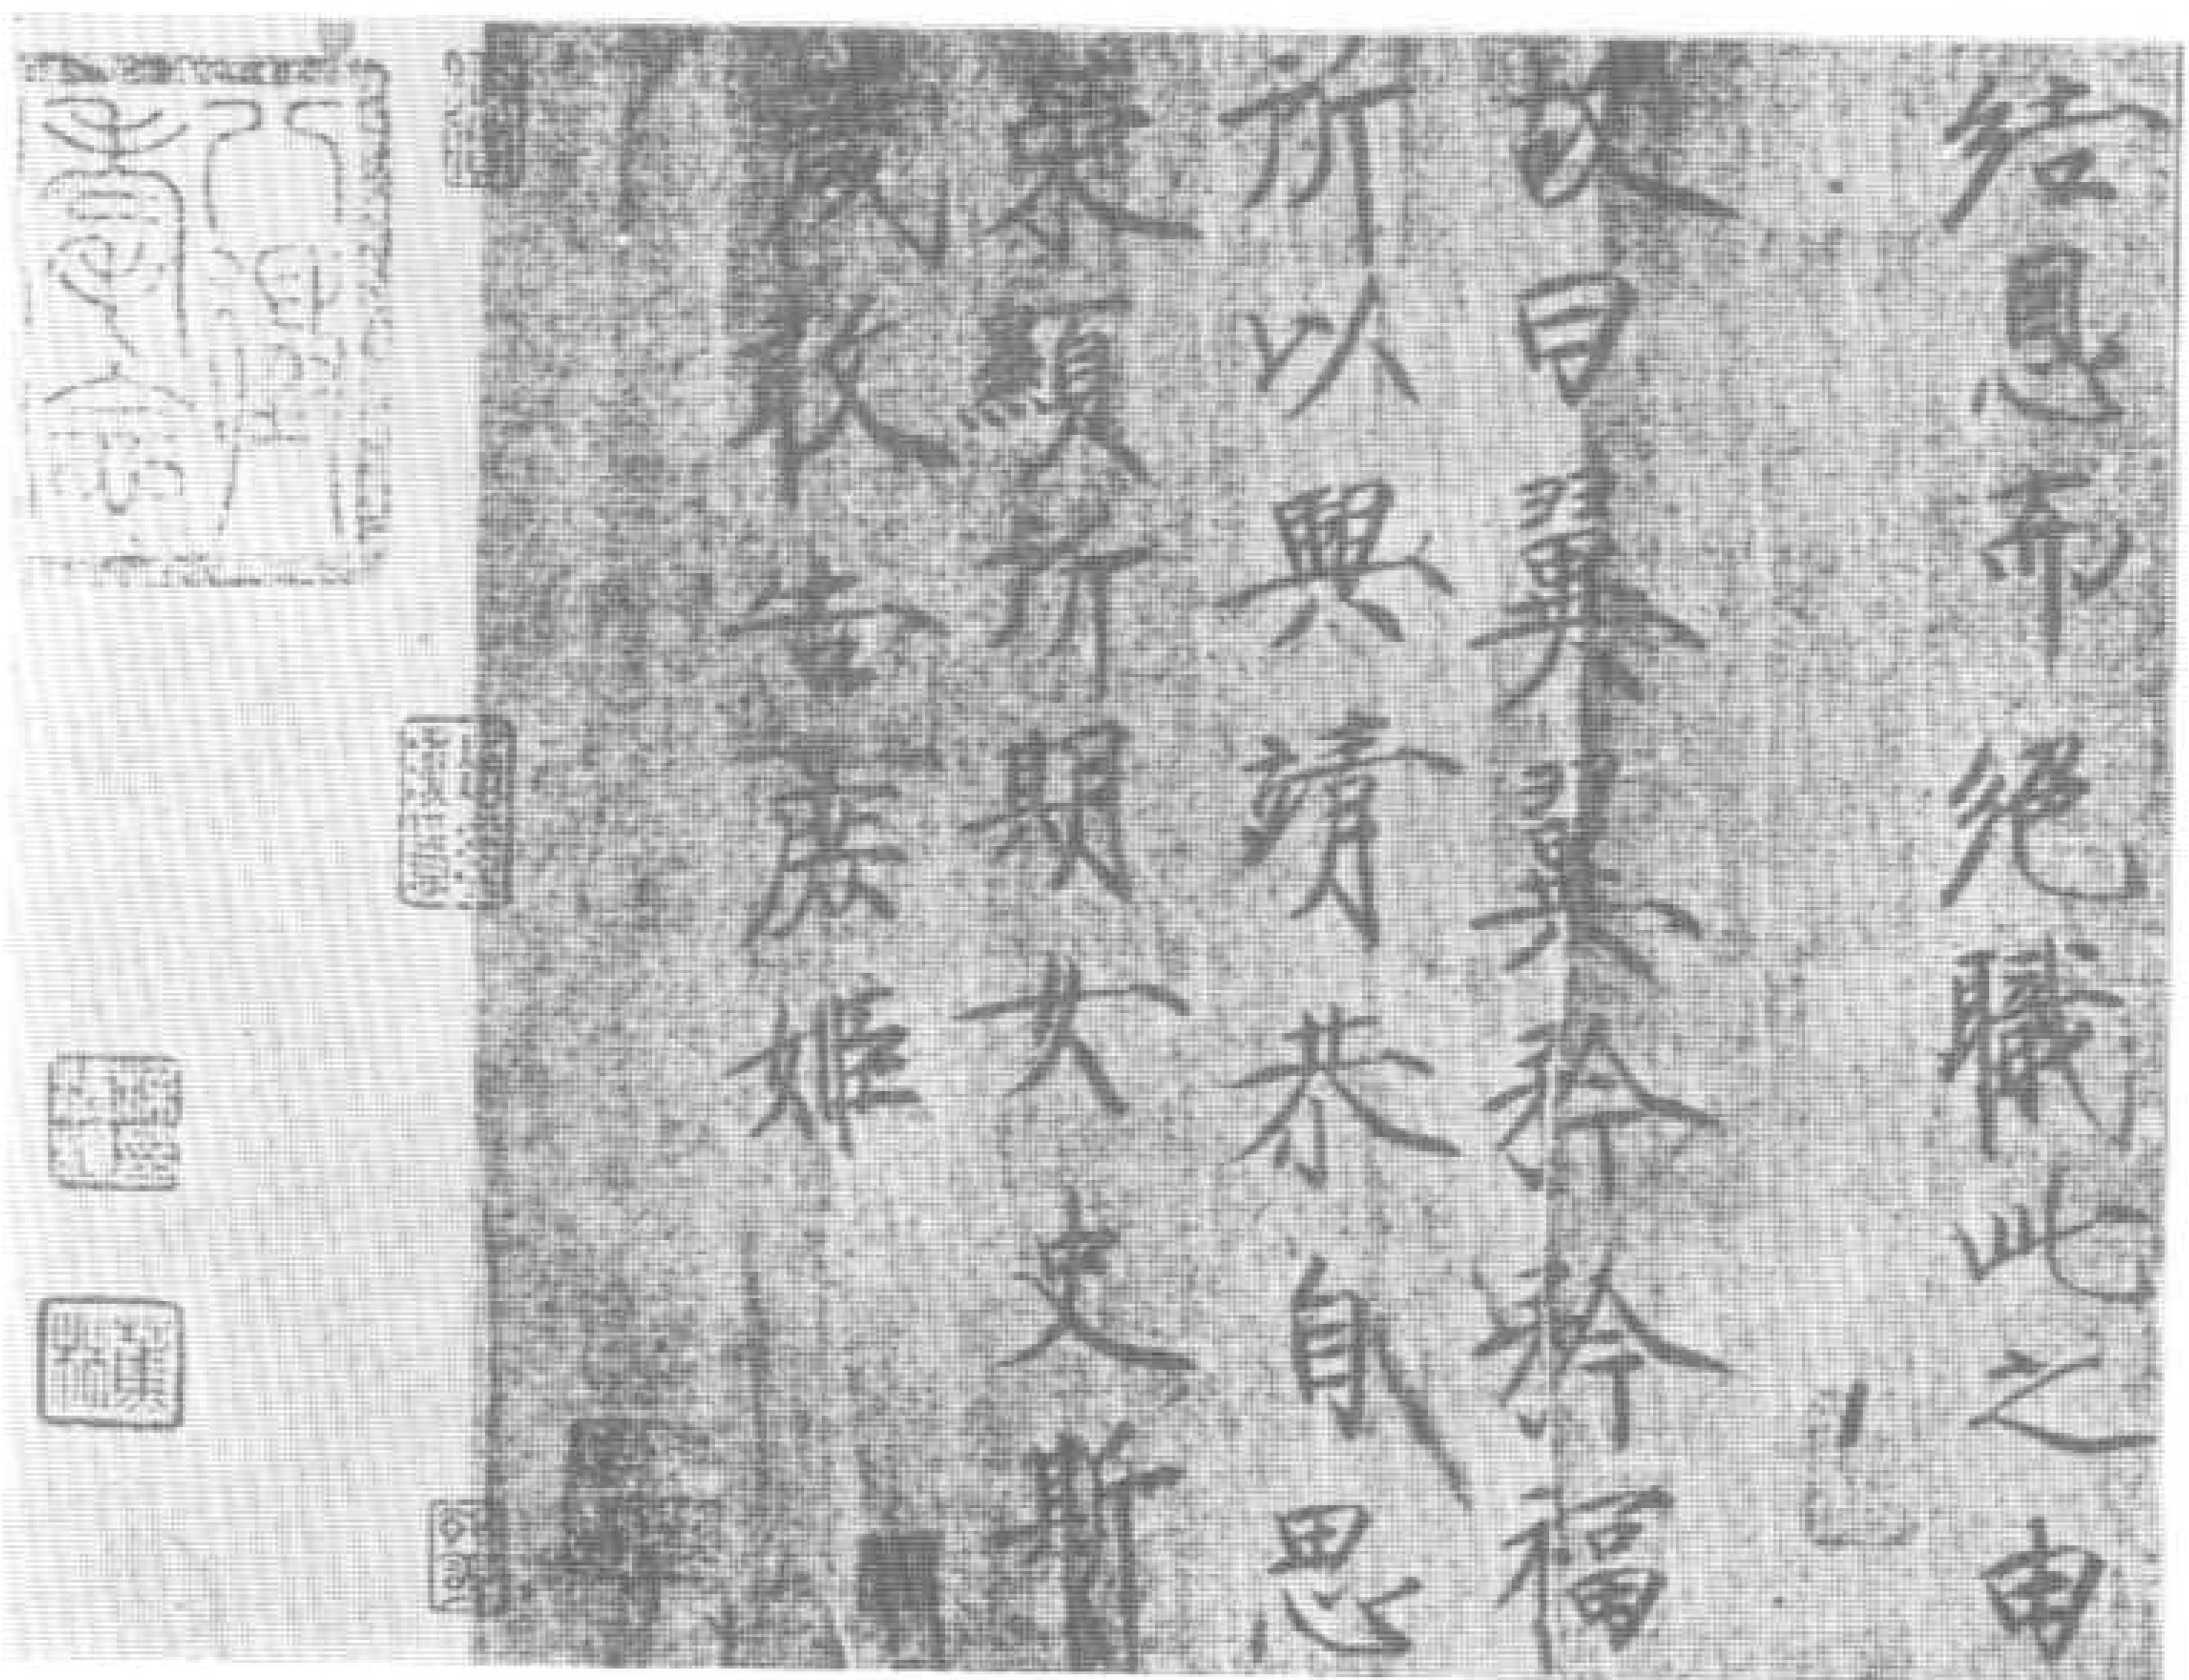 結恩而絕職此之由
故曰翼翼矜矜福
所以興靖恭自思
榮顯所期女史斯
箴敢告庶姬